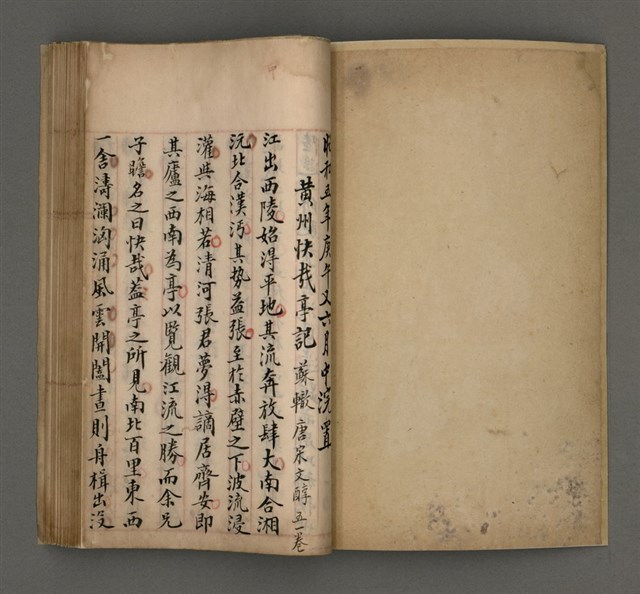 昭和五年庚午又六月中浣置
黃州快哉亭記 蘇轍 唐宋文醇 五一卷
江出西陵始得平地其流奔放肆大南合湘
沅北合漢沔其勢益張至於赤壁之下波流浸
灌與海相若清河張君夢得謫居齊安即
其廬之西南為亭以覽觀江流之勝而余兄
子瞻名之曰快哉蓋亭之所見南北百里東西
一舍濤瀾洶涌風雲開闔晝則舟楫出沒